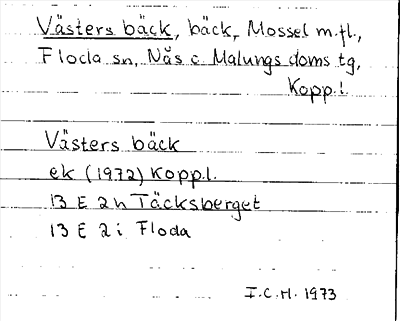 Västers bäck, bäck, Mossel m.fl.,
Floda sn, Nås o. Malungs doms tg,
Kopp.l.
Västers bäck
ek (1972) Kopp.l.
13 E 2h Täcksberget
13 E 2i Floda
I.C.H. 1973